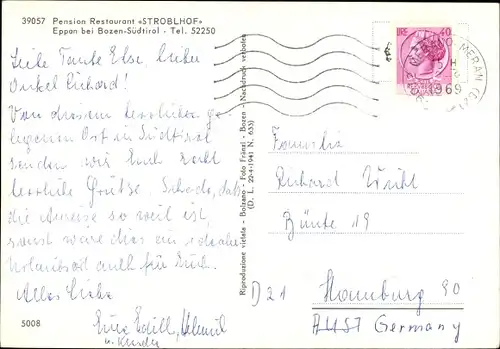 39057 Pension Restaurant «STROBLHOF»
Eppan bei Bozen-Südtirol - Tel. 52250
Liebe Tante Else, lieber
Onkel Richard!
Von diesem herrlichen ge-
legenen Ort in Südtirol
senden wir Euch recht
herzliche Grüße. Schade, daß
die Anreise so weit ist,
sonst wäre dies ein idealer
Urlaubsort auch für Euch.
Alles Liebe
Eure Edith, Helmut
u. Kinder
5008
Riproduzione vietata - Bolzano - Foto - Bozen - Nachdruck verboten
(D. L. 22-4-1941 N. 633)
LIRE 40
MERAN
1969
Familie
Richard
Bünte 19
D 21 Hamburg 90
Germany